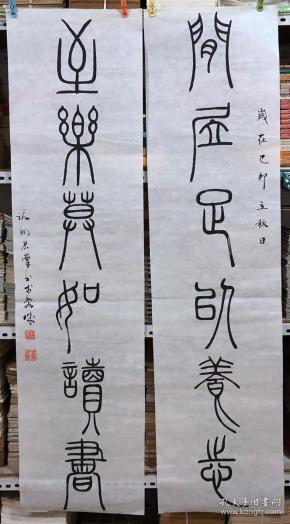 歲在己卯立秋日
閒居足以養志
至樂莫如讀書
孔夫子旧书网
www.kongfz.com